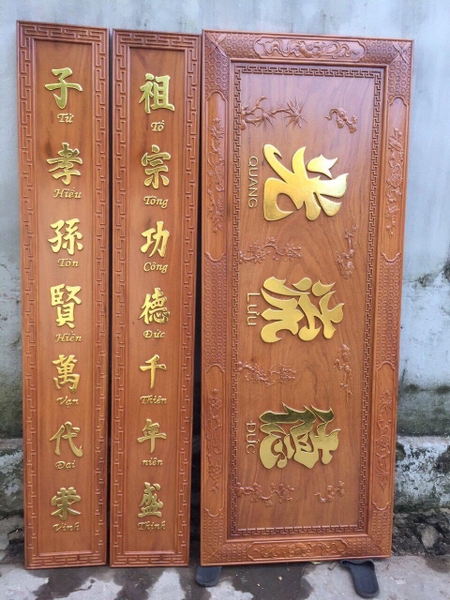 子孝孫賢萬代荣
Tử Hiếu Tôn Hiền Vạn Đại Vinh
祖宗功德千年盛
Tổ Tông Công Đức Thiên niên Thịnh
光流德
QUANG LƯU ĐỨC